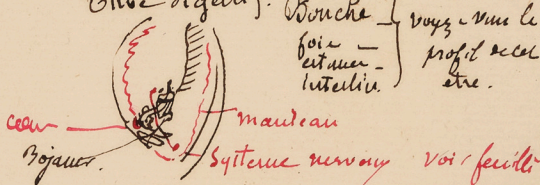 Bouche
foie
estomac
Intestin.
voyez - vous le
profil de cet
etre.
coeur
manteau
Bojanus.
Systeme nerveux voir feuille